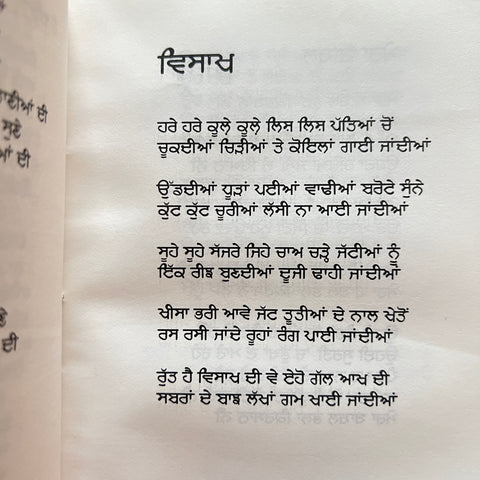 ਵਿਸਾਖ
ਹਰੇ ਹਰੇ ਕੂਲੇ ਕੂਲੇ ਲਿਸ਼ ਲਿਸ਼ ਪੱਤਿਆਂ ਚੋਂ
ਚੂਕਦੀਆਂ ਚਿੜੀਆਂ ਤੇ ਕੋਇਲਾਂ ਗਾਈ ਜਾਂਦੀਆਂ
ਉੱਡਦੀਆਂ ਧੂੜਾਂ ਪਈਆਂ ਵਾਢੀਆਂ ਬਰੋਟੇ ਸੁੰਨੇ
ਕੁੱਟ ਕੁੱਟ ਚੂਰੀਆਂ ਲੱਸੀ ਨਾ ਆਈ ਜਾਂਦੀਆਂ
ਸੂਹੇ ਸੂਹੇ ਸੱਜਰੇ ਜਿਹੇ ਚਾਅ ਚੜ੍ਹੇ ਜੱਟੀਆਂ ਨੂੰ
ਇੱਕ ਰੀਝ ਬੁਣਦੀਆਂ ਦੂਜੀ ਢਾਹੀ ਜਾਂਦੀਆਂ
ਖੀਸਾ ਭਰੀ ਆਵੇ ਜੱਟ ਤੂਤੀਆਂ ਦੇ ਨਾਲ ਖੇਤੋਂ
ਰਸ ਰਸੀ ਜਾਂਦੇ ਰੂਹਾਂ ਰੰਗ ਪਾਈ ਜਾਂਦੀਆਂ
ਰੁੱਤ ਹੈ ਵਿਸਾਖ ਦੀ ਵੇ ਏਹੋ ਗੱਲ ਆਖ ਦੀ
ਸਬਰਾਂ ਦੇ ਬਾਝ ਲੱਖਾਂ ਗਮ ਖਾਈ ਜਾਂਦੀਆਂ